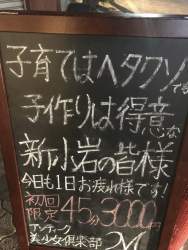 子育てはヘタクソでも
子作りは得意な
新小岩の皆様
今日も1日お疲れ様です!
初回
限定 45分3000円
アンティーク
美少女倶楽部 M